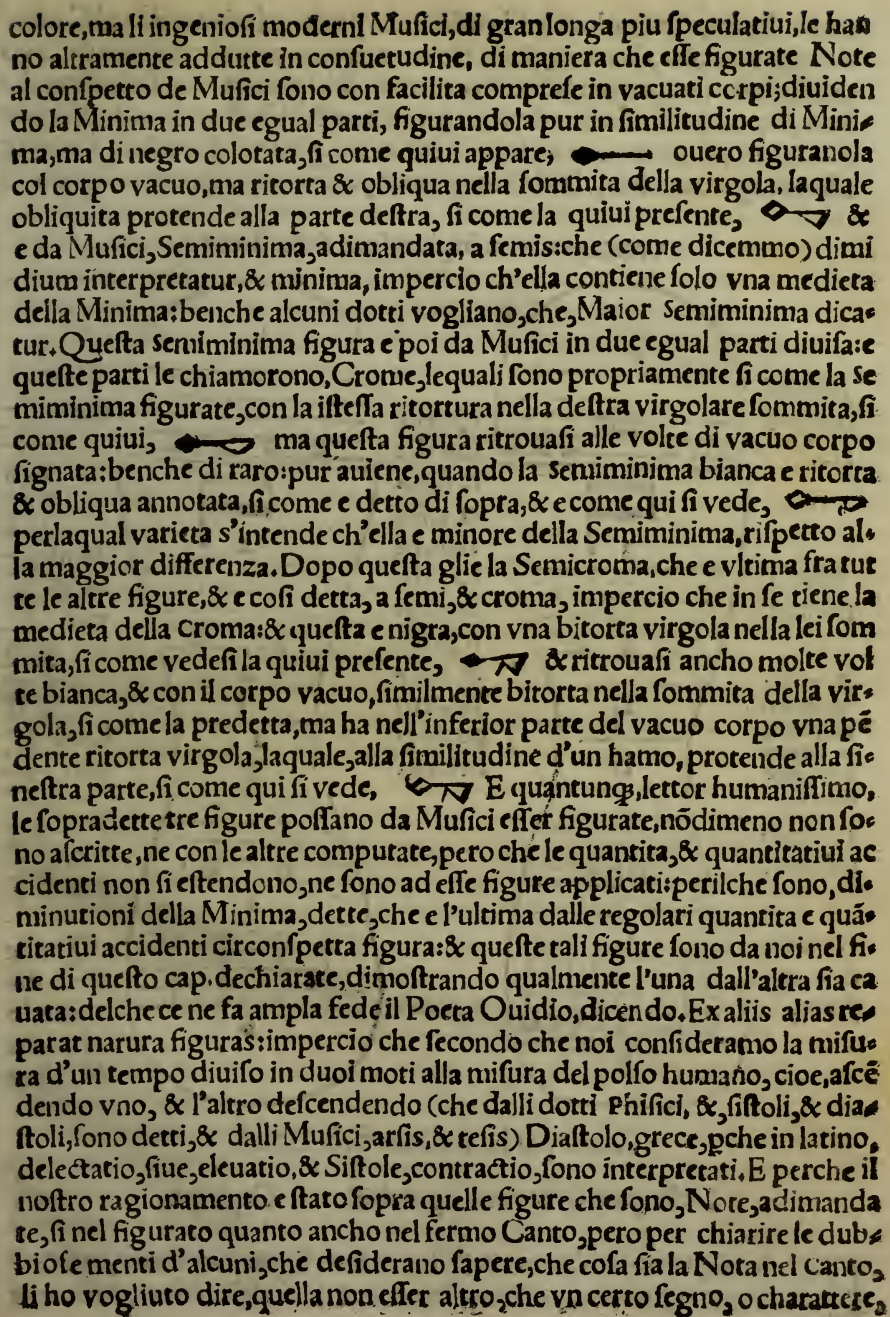 colore,ma li ingeniosi moderni Musici,di gran longa piu speculatiui,le han
no altramente addutte in consuetudine, di maniera che esse figurate Note
al conspetto de Musici sono con facilita comprese in vacuati corpi;diuiden
do la Minima in due egual parti, figurandola pur in similitudine di Mini-
ma,ma di negro colotata,si come quiui appare, ouero figuranola
col corpo vacuo,ma ritorta & obliqua nella sommita della virgola, laquale
obliquita protende alla parte destra, si come la quiui presente, &
e da Musici,Semiminima,adimandata, a semis:che (come dicemmo) dimi
dium interpretatur,& minima, impercio ch'ella contiene solo vna medieta
della Minima:benche alcuni dotti vogliano,che,Maior Semiminima dica-
tur.Questa Semiminima figura e poi da Musici in due egual parti diuisa:e
queste parti le chiamorono,Crome,lequali sono propriamente si come la Se
miminima figurate,con la istessa ritortura nella destra virgolare sommita,si
come quiui, ma questa figura ritrouasi alle volte di vacuo corpo
signata:benche di raro:pur auiene,quando la Semiminima bianca e ritorta
& obliqua annotata,si come e detto di sopra,& e come qui si vede,
perlaqual varieta s'intende ch'ella e minore della Semiminima,rispetto al-
la maggior differenza.Dopo questa glie la Semicroma,che e vltima fra tut
te le altre figure,& e cosi detta, a semi,& croma, impercio che in se tiene la
medieta della Croma:& questa e nigra,con vna bitorta virgola nella lei som
mita,si come vedesi la quiui presente, & ritrouasi ancho molte vol
te bianca,& con il corpo vacuo,similmente bitorta nella sommita della vir-
gola,si come la predetta,ma ha nell'inferior parte del vacuo corpo vna pē
dente ritorta virgola,laquale,alla similitudine d'un hamo, protende alla si-
nestra parte,si come qui si vede, E quantunq;,lettor humanissimo,
le sopradette tre figure possano da Musici esser figurate,nōdimeno non so-
no ascritte,ne con le altre computate,pero che le quantita,& quantitatiui ac
cidenti non si estendono,ne sono ad esse figure applicati:perilche sono,di-
minutioni della Minima,dette,che e l'ultima dalle regolari quantita e quā-
titatiui accidenti circonspetta figura:& queste tali figure sono da noi nel fi-
ne di questo cap.dechiarate,dimostrando qualmente l'una dall'altra sia ca
uata:delche ce ne fa ampla fede il Poeta Ouidio,dicendo.Ex aliis alias re-
parat narura figuras:impercio che secondo che noi consideramo la misu-
ra d'un tempo diuiso in duoi moti alla misura del polso humano, cioe,ascē
dendo vno, & l'altro descendendo (che dalli dotti Phisici, &,sistoli,& dia-
stoli,sono detti,& dalli Musici,arsis,& tesis) Diastolo,grece,pche in latino,
delectatio,siue,eleuatio,& Sistole,contractio,sono interpretati.E perche il
nostro ragionamento e stato sopra quelle figure che sono,Note,adimanda
te,si nel figurato quanto ancho nel fermo Canto,pero per chiarire le dub-
biose menti d'alcuni,che desiderano sapere,che cosa sia la Nota nel Canto,
li ho vogliuto dire,quella non esser altro,che vn certo segno, o charattere,